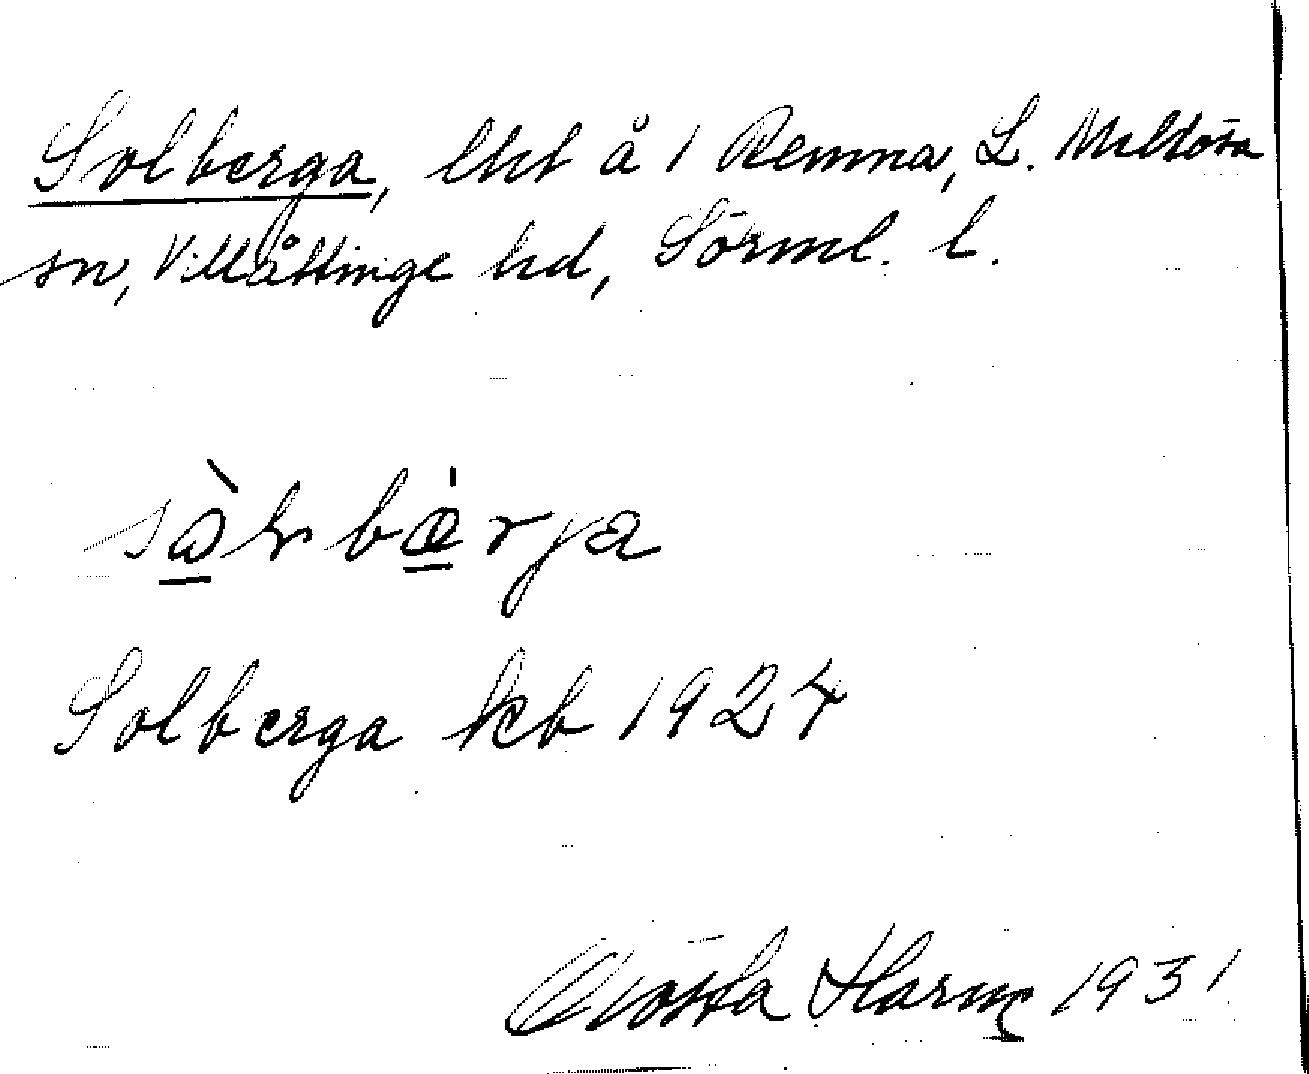 Solberga, lht å 1 Remna, L. Mellösa
sn, Villåttinge hd, Sörml. l.
Solberga kb 1924
Gösta 1931